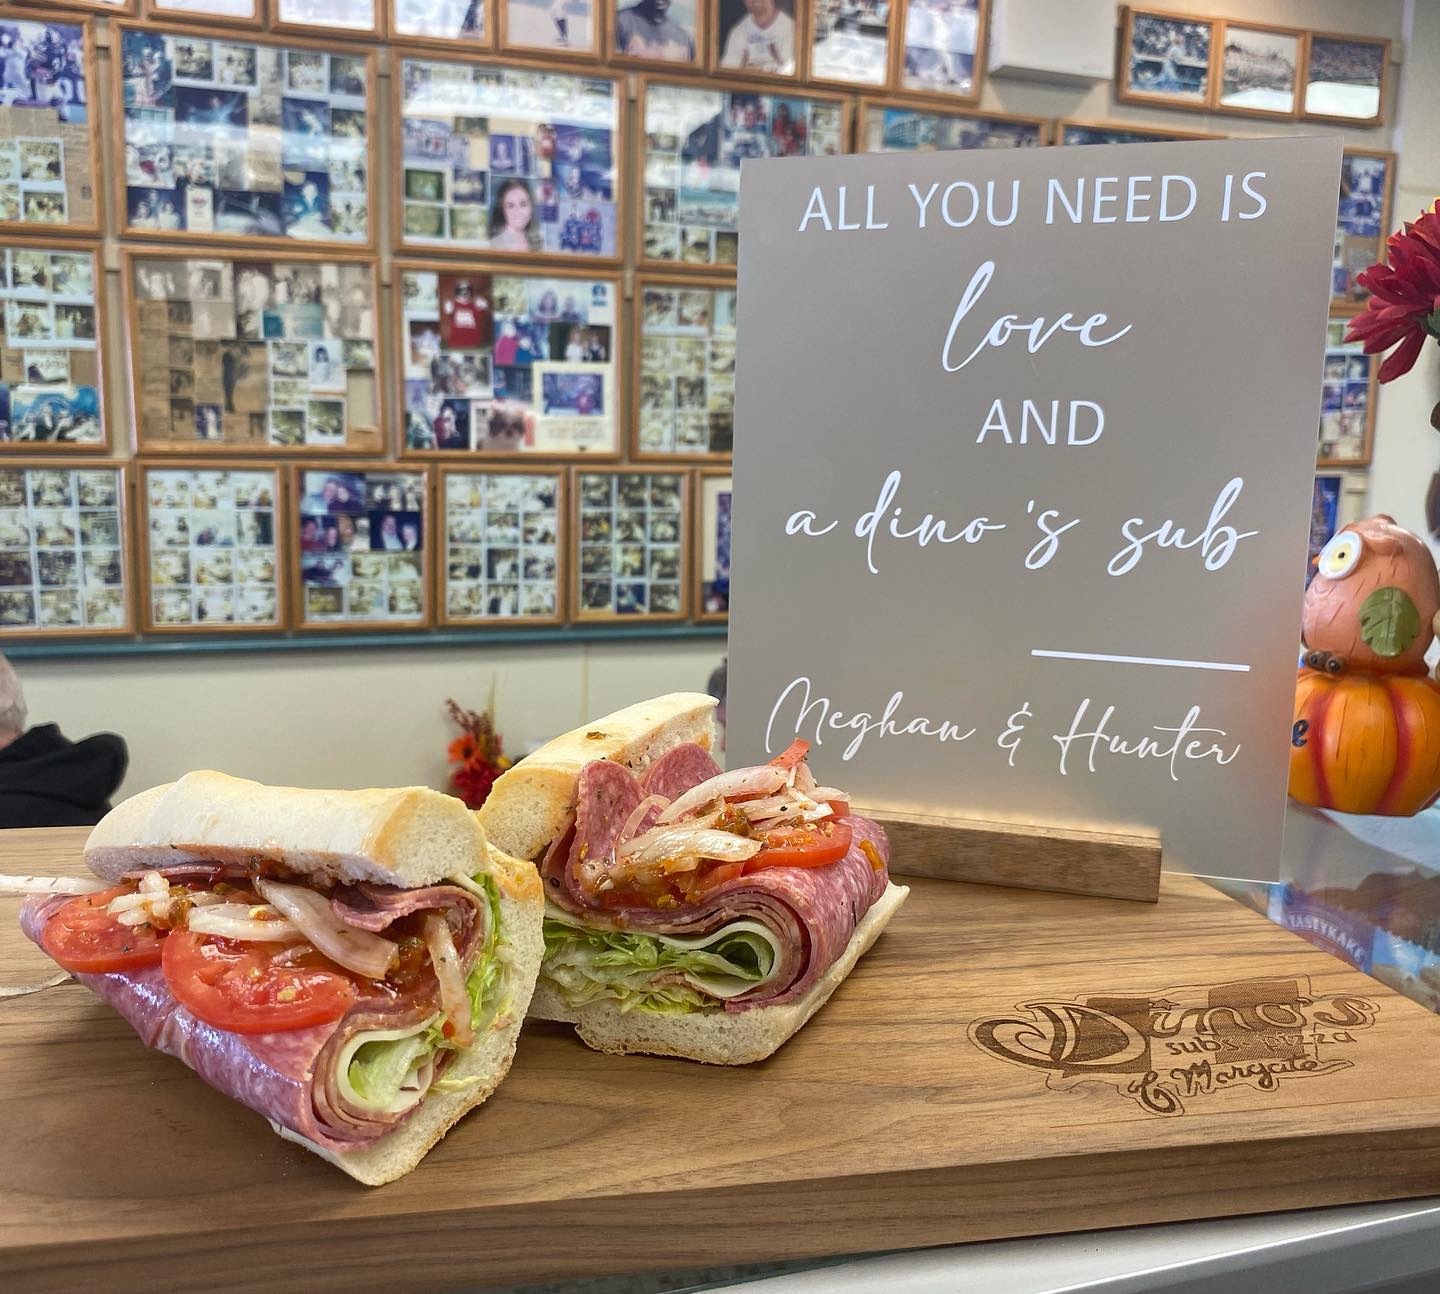 ALL YOU NEED IS
love
AND
a dino's sub
Meghan & Hunter
e
TASTYKAKE
Dino's
subs pizza
of Margate